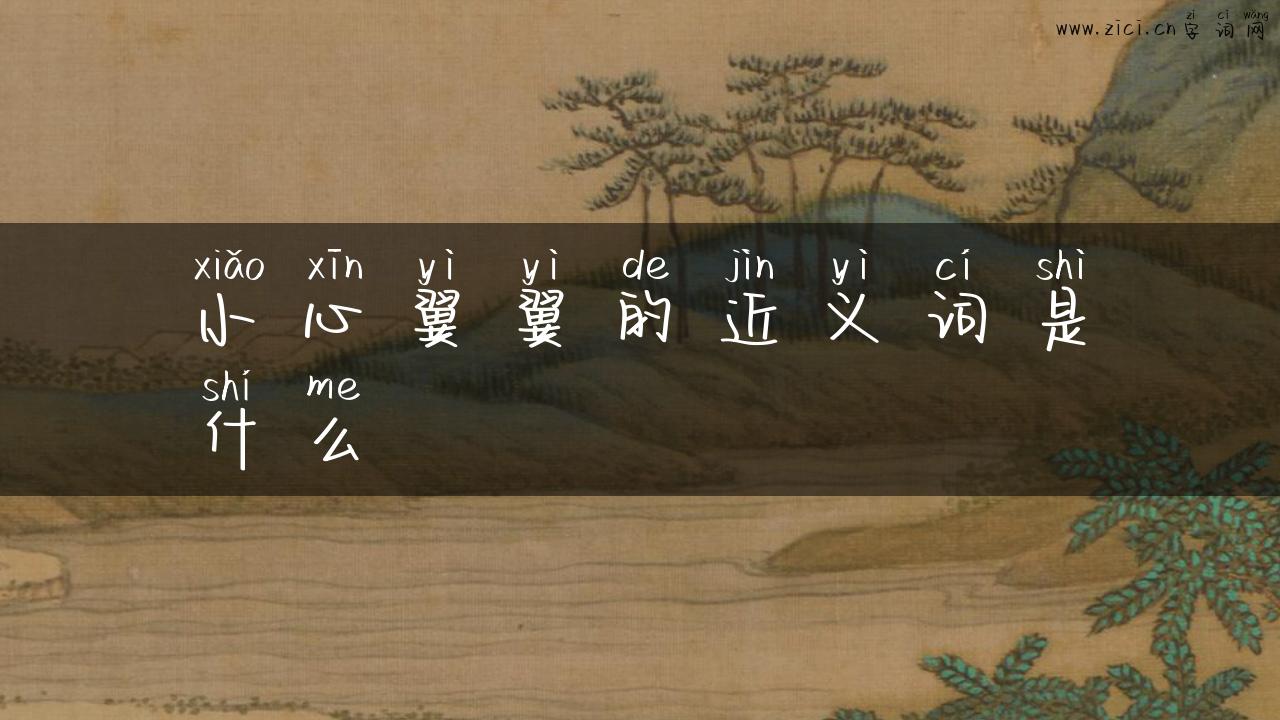 zì cí wǎng
www.zici.cn 字词网
xiǎo xīn yì yì de jìn yì cí shì
小心翼翼的近义词是
shí me
什么